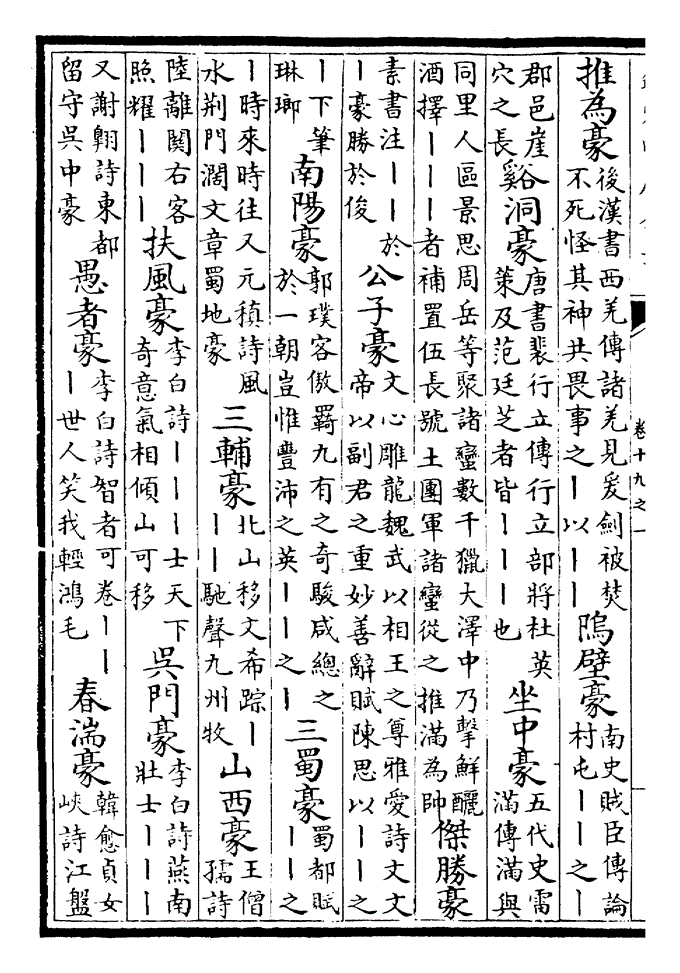 推為豪後漢書西羌傳諸羌見爰劍被焚不死怪其神共畏事之｜以｜｜隖壁豪南史賊臣傳論村屯｜｜之｜
郡邑崖穴之長谿洞豪唐書裴行立傳行立部將杜英策及范廷芝者皆｜｜｜也坐中豪五代史雷滿傳滿與
同里人區景思周岳等聚諸蠻數千獵大澤中乃擊鮮釃酒擇｜｜｜者補置伍長號土團軍諸蠻從之推滿為帥傑勝豪
素書注｜｜於｜豪勝於俊公子豪文心雕龍魏武以相王之尊雅愛詩文文帝以副君之重妙善辭賦陳思以｜｜之
｜下筆琳瑯南陽豪郭璞客傲羇九有之奇駿咸總之於一朝豈惟豐沛之英｜｜之｜三蜀豪蜀都賦｜｜之
｜時來時往又元稹詩風水荆門濶文章蜀地豪三輔豪北山移文希踪｜｜｜馳聲九州牧山西豪王僧孺詩
陸離關右客照耀｜｜｜扶風豪李白詩｜｜｜士天下奇意氣相傾山可移吳門豪李白詩燕南壯士｜｜｜
又謝翺詩東都留守吳中豪愚者豪李白詩智者可卷｜｜｜世人笑我輕鴻毛春湍豪韓愈貞女峽詩江盤
卷十九之一